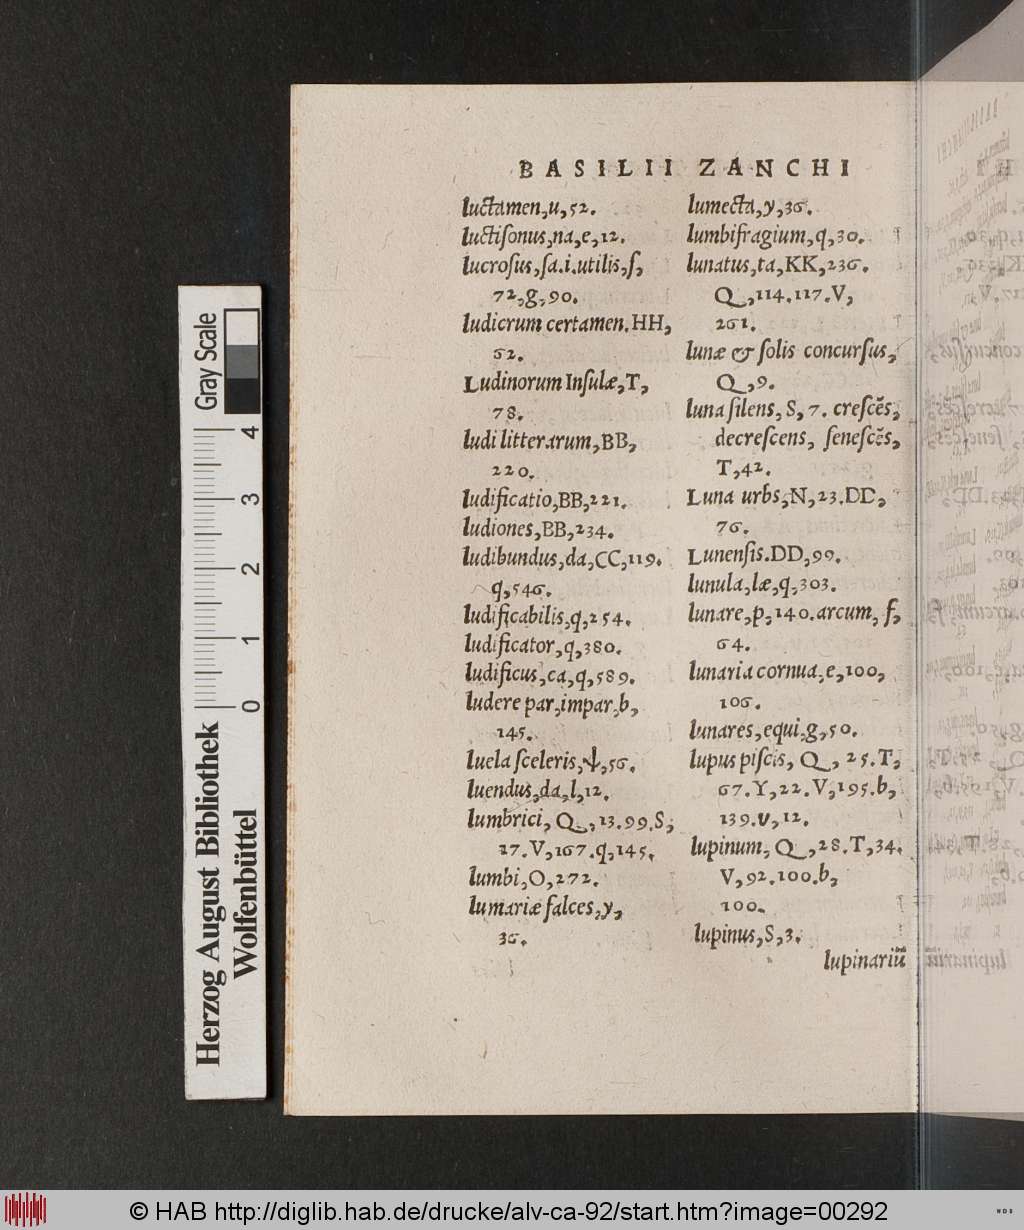 BASILII ZANCHI
luctamen,u,52.
luctiſonus,na,e,12.
lucroſus,ſa.i.utilis,ſ,
72,g,90.
ludicrum certamen.HH,
62.
Ludinorum Inſulæ,T,
78.
ludi litterarum,BB,
220.
ludificatio,BB,221.
ludiones,BB,234.
ludibundus,da,CC,119.
q,546.
ludificabilis,q,254.
ludificator,q,380.
ludificus,ca,q,589.
ludere par,impar,b,
145.
luela ſceleris,ↆ,56.
luendus,da,l,12.
lumbrici, Q,13.99.S,
27.V,167.q,145.
lumbi,O,272.
lumariæ falces,y,
36.
lumecta,y,36.
lumbifragium,q,30.
lunatus,ta,KK,236.
Q,114.117.V,
261.
lunæ & ſolis concurſus,
Q,9.
luna ſilens, S, 7. creſcẽs,
decreſcens, ſeneſcẽs,
T,42.
Luna urbs,N,23.DD,
76.
Lunenſis.DD,99.
lunula,læ,q,303.
lunare,p,140.arcum, ſ,
64.
lunaria cornua,e,100,
106.
lunares,equi,g,50.
lupus piſcis, Q, 25.T,
67.Y,22.V,195.b,
139.u,12.
lupinum, Q,28.T,34.
V,92.100.b,
100.
lupinus,S,3.
lupinariũ
Gray Scale
4
3
2
1
0
Herzog August Bibliothek
Wolfenbüttel
© HAB http://diglib.hab.de/drucke/alv-ca-92/start.htm?image=00292